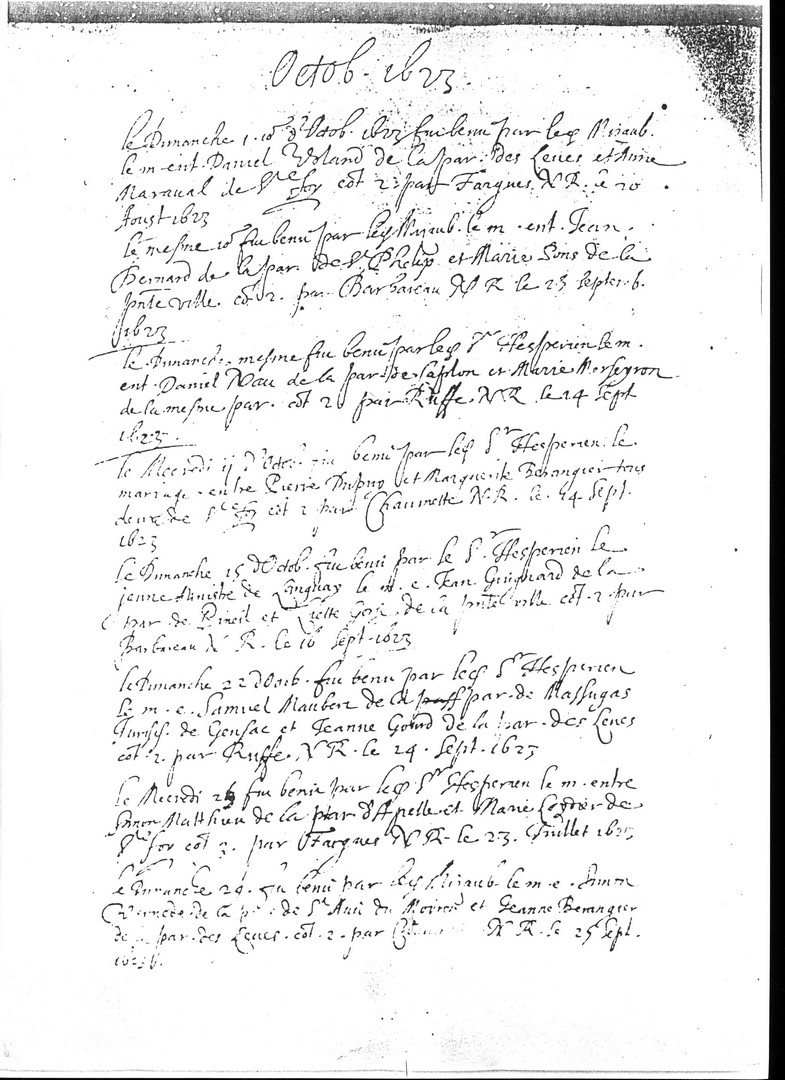 Octob. 1623.
le Dimanche 1. jo.r d'Octob. 1623 fut benit par led Miraub.
le m. ent. Daniel Voland de la par. des Leves et Anne
Maraval de Ste foy cot 2. par Fargues N.R. le 20
Aoust 1623
le mesme jor fut benit par led Miraub. le m. ent. Jean
Bernard de la par. de St Phelip et Marie Sons de la
pnte ville. cot 2. par Barbareau N R le 23 Septe.b.
1623
le Dimanche mesme fut benit par led Sr Hesperien le m.
ent. Daniel Nau de la par. de Saplon et Marie Morseyron
de la mesme par. cot 2. par Ruffe. N.R. le 24 Sept
1623.
le Mecredi ij d'Octob. fut benit par led Sr Hesperien le
mariage entre Pierre Dupuy et Marguerite Berangier tous
deux de Ste foy cot 2 par Chaumette N.R. le 14 Sept.
1623
le Dimanche 15 d'Octob. fut benit par le Sr Hesperien le
jeune Ministre de le m. e. Jean Guignard de la
par de Pineil et de la pnte ville cot. 2. par
Barbareau N R. le 16 Sept. 1623
le Dimanche 22 d'Octb. fut benit par led Sr Hesperien
le m. e. Samuel Maubert de la par. de Massugas
Jurisd. de Gensac et Jeanne Gourd de la par. des Leves
cot. 2. par Ruffe. N R. le 24. Sept. 1623
le Mecredi 25 fut benit par led Sr Hesperien le m. entre
Simon Matthieu de la par d'Apelle et Marie de
Ste foy cot 2. par Fargues N R. le 23. Juillet 1623
le Dimanche 29. fut benit par led Miraub. le m. e. Simon
de la p. de St Avit du Moiron et Jeanne Berangier
de par. des Leves. cot. 2. par N R. le 25 Sept.